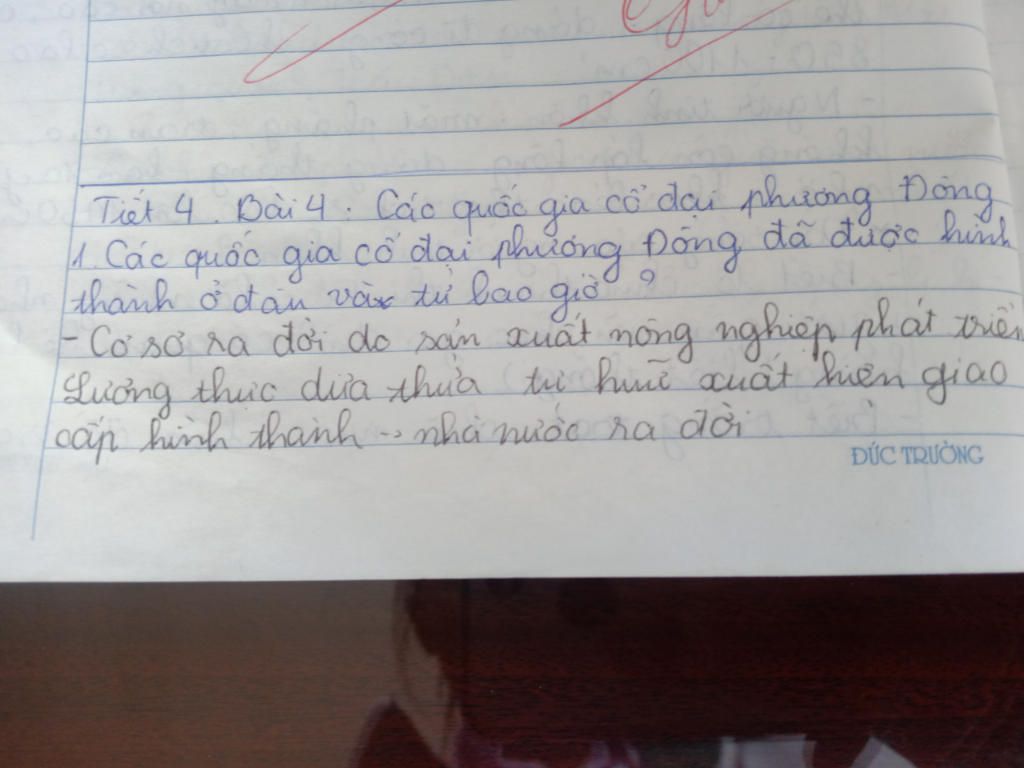 Tiết 4. Bài 4: Các quốc gia cổ đại phương Đông
1. Các quốc gia cổ đại phương Đông đã được hình
thành ở đâu và từ bao giờ?
- Cơ sơ ra đời do sản xuất nông nghiệp phát triển
Lương thực dưa thừa tư hưũ xuất hiện giao
cấp hình thành -> nhà nước ra đời
ĐỨC TRƯỜNG